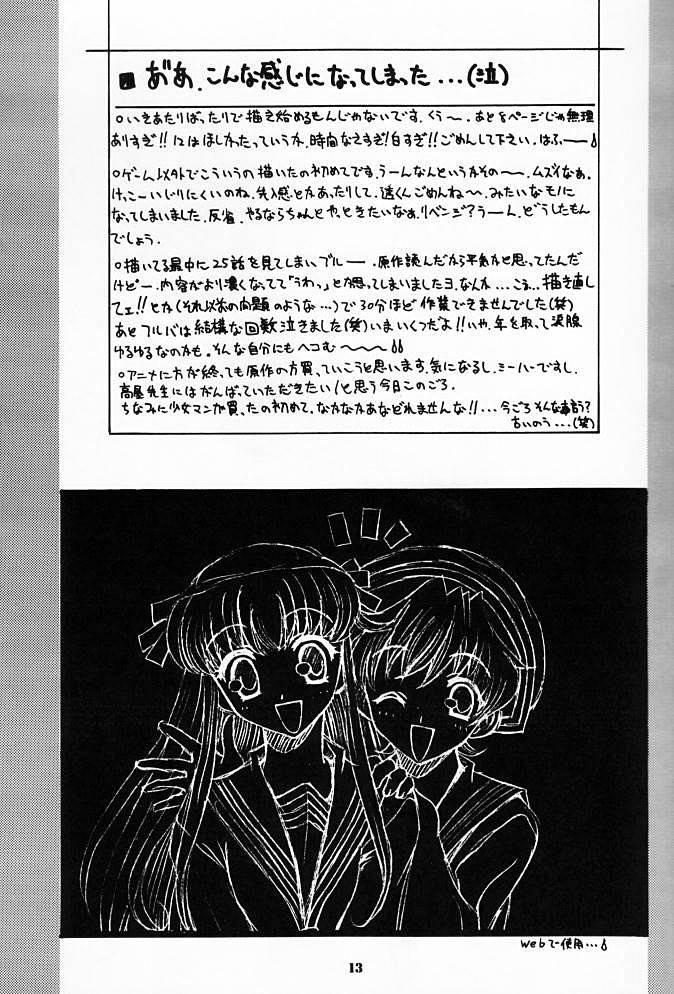 ■ があ、こんな感じになってしまった...(泣)
○いきあたりばったりで描き始めるもんじゃないです。くぅ〜。あと8ページじゃ無理
ありすぎ!!12はほしかったっていうか、時間なさすぎ!白すぎ!!ごめんして下さい。はふぅ──
○ゲーム以外でこういうの描いたの初めてです。うーんなんというかその〜。ムズイなぁ。
けっこーいじりにくいのね。先入感とかあったりして。透くんごめんね〜。みたいなモノに
なってしまいました。反省。やるならちゃんとやっときたいなぁ。リベンジ?うーん。どうしたもん
でしょう。
○描いてる最中に25話を見てしまい、ブルー──。原作読んだから平気かと思ってたんだ
けどー。内容がより濃くなってて「うわっ」とか思ってしまいましたヨ。なんか...こう...描き直し
てェ!!とか(それ以前の問題のような...)で30分ほど作業できませんでした(笑)
あとフルバは結構な回数泣きました(笑)いまいくつだよ!!いや、年を取って涙腺
ゆるゆるなのかも。そんな自分にもヘコむ〜
○アニメに方が終っても原作の方買っていこうと思います。気になるし。ミーハーですし。
高屋先生にはがんばっていただきたい!と思う今日このごろ。
ちなみに少女マンガ買ったの初めて。なかなかあなどれませんな!!...今ごろそんな事言う?
...(笑)
Webで使用...
13